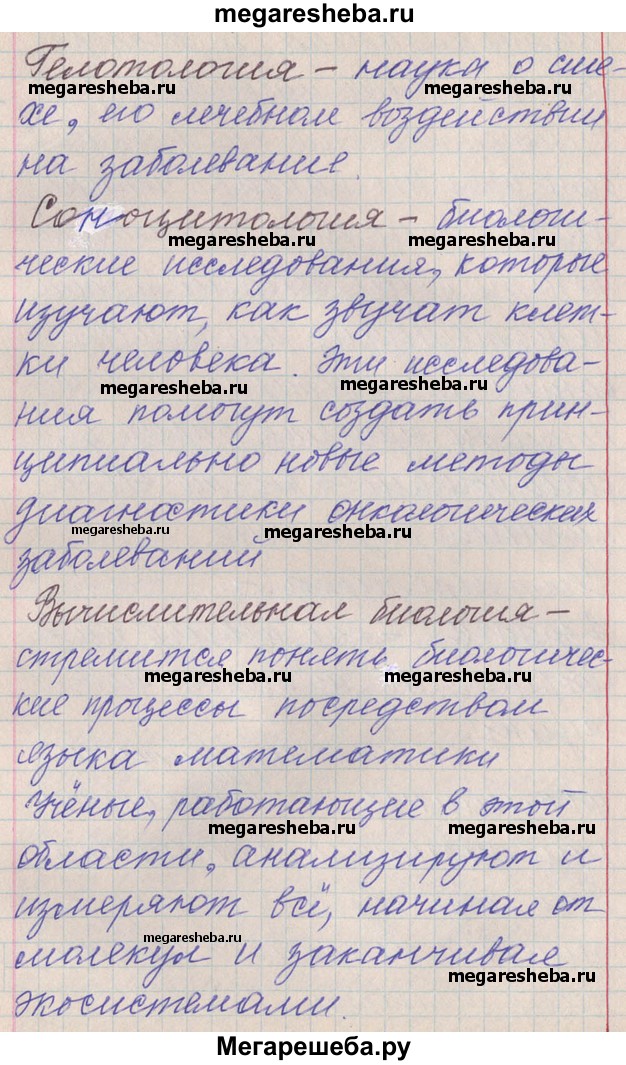 megaresheba.ru
Гелотология – наука о сме-
megaresheba.ru megaresheba.ru
хе, его лечебном воздействии
на заболевание.
Соноцитология – биологи-
megaresheba.ru megaresheba.ru
ческие исследования, которые
изучают, как звучат клет-
ки человека. Эти исследова-
megaresheba.ru megaresheba.ru
ния помогут создать прин-
ципиально новые методы
диагностики онкологических
megaresheba.ru megaresheba.ru
заболеваний
Вычислительная биология –
стремится понять биологичес-
megaresheba.ru megaresheba.ru
кие процессы посредством
языка математики
Учёные, работающие в этой
megaresheba.ru megaresheba.ru
области, анализируют и
измеряют всё, начиная от
megaresheba.ru
молекул и заканчивая
megaresheba.ru
экосистемами.
Мегарешеба.ру